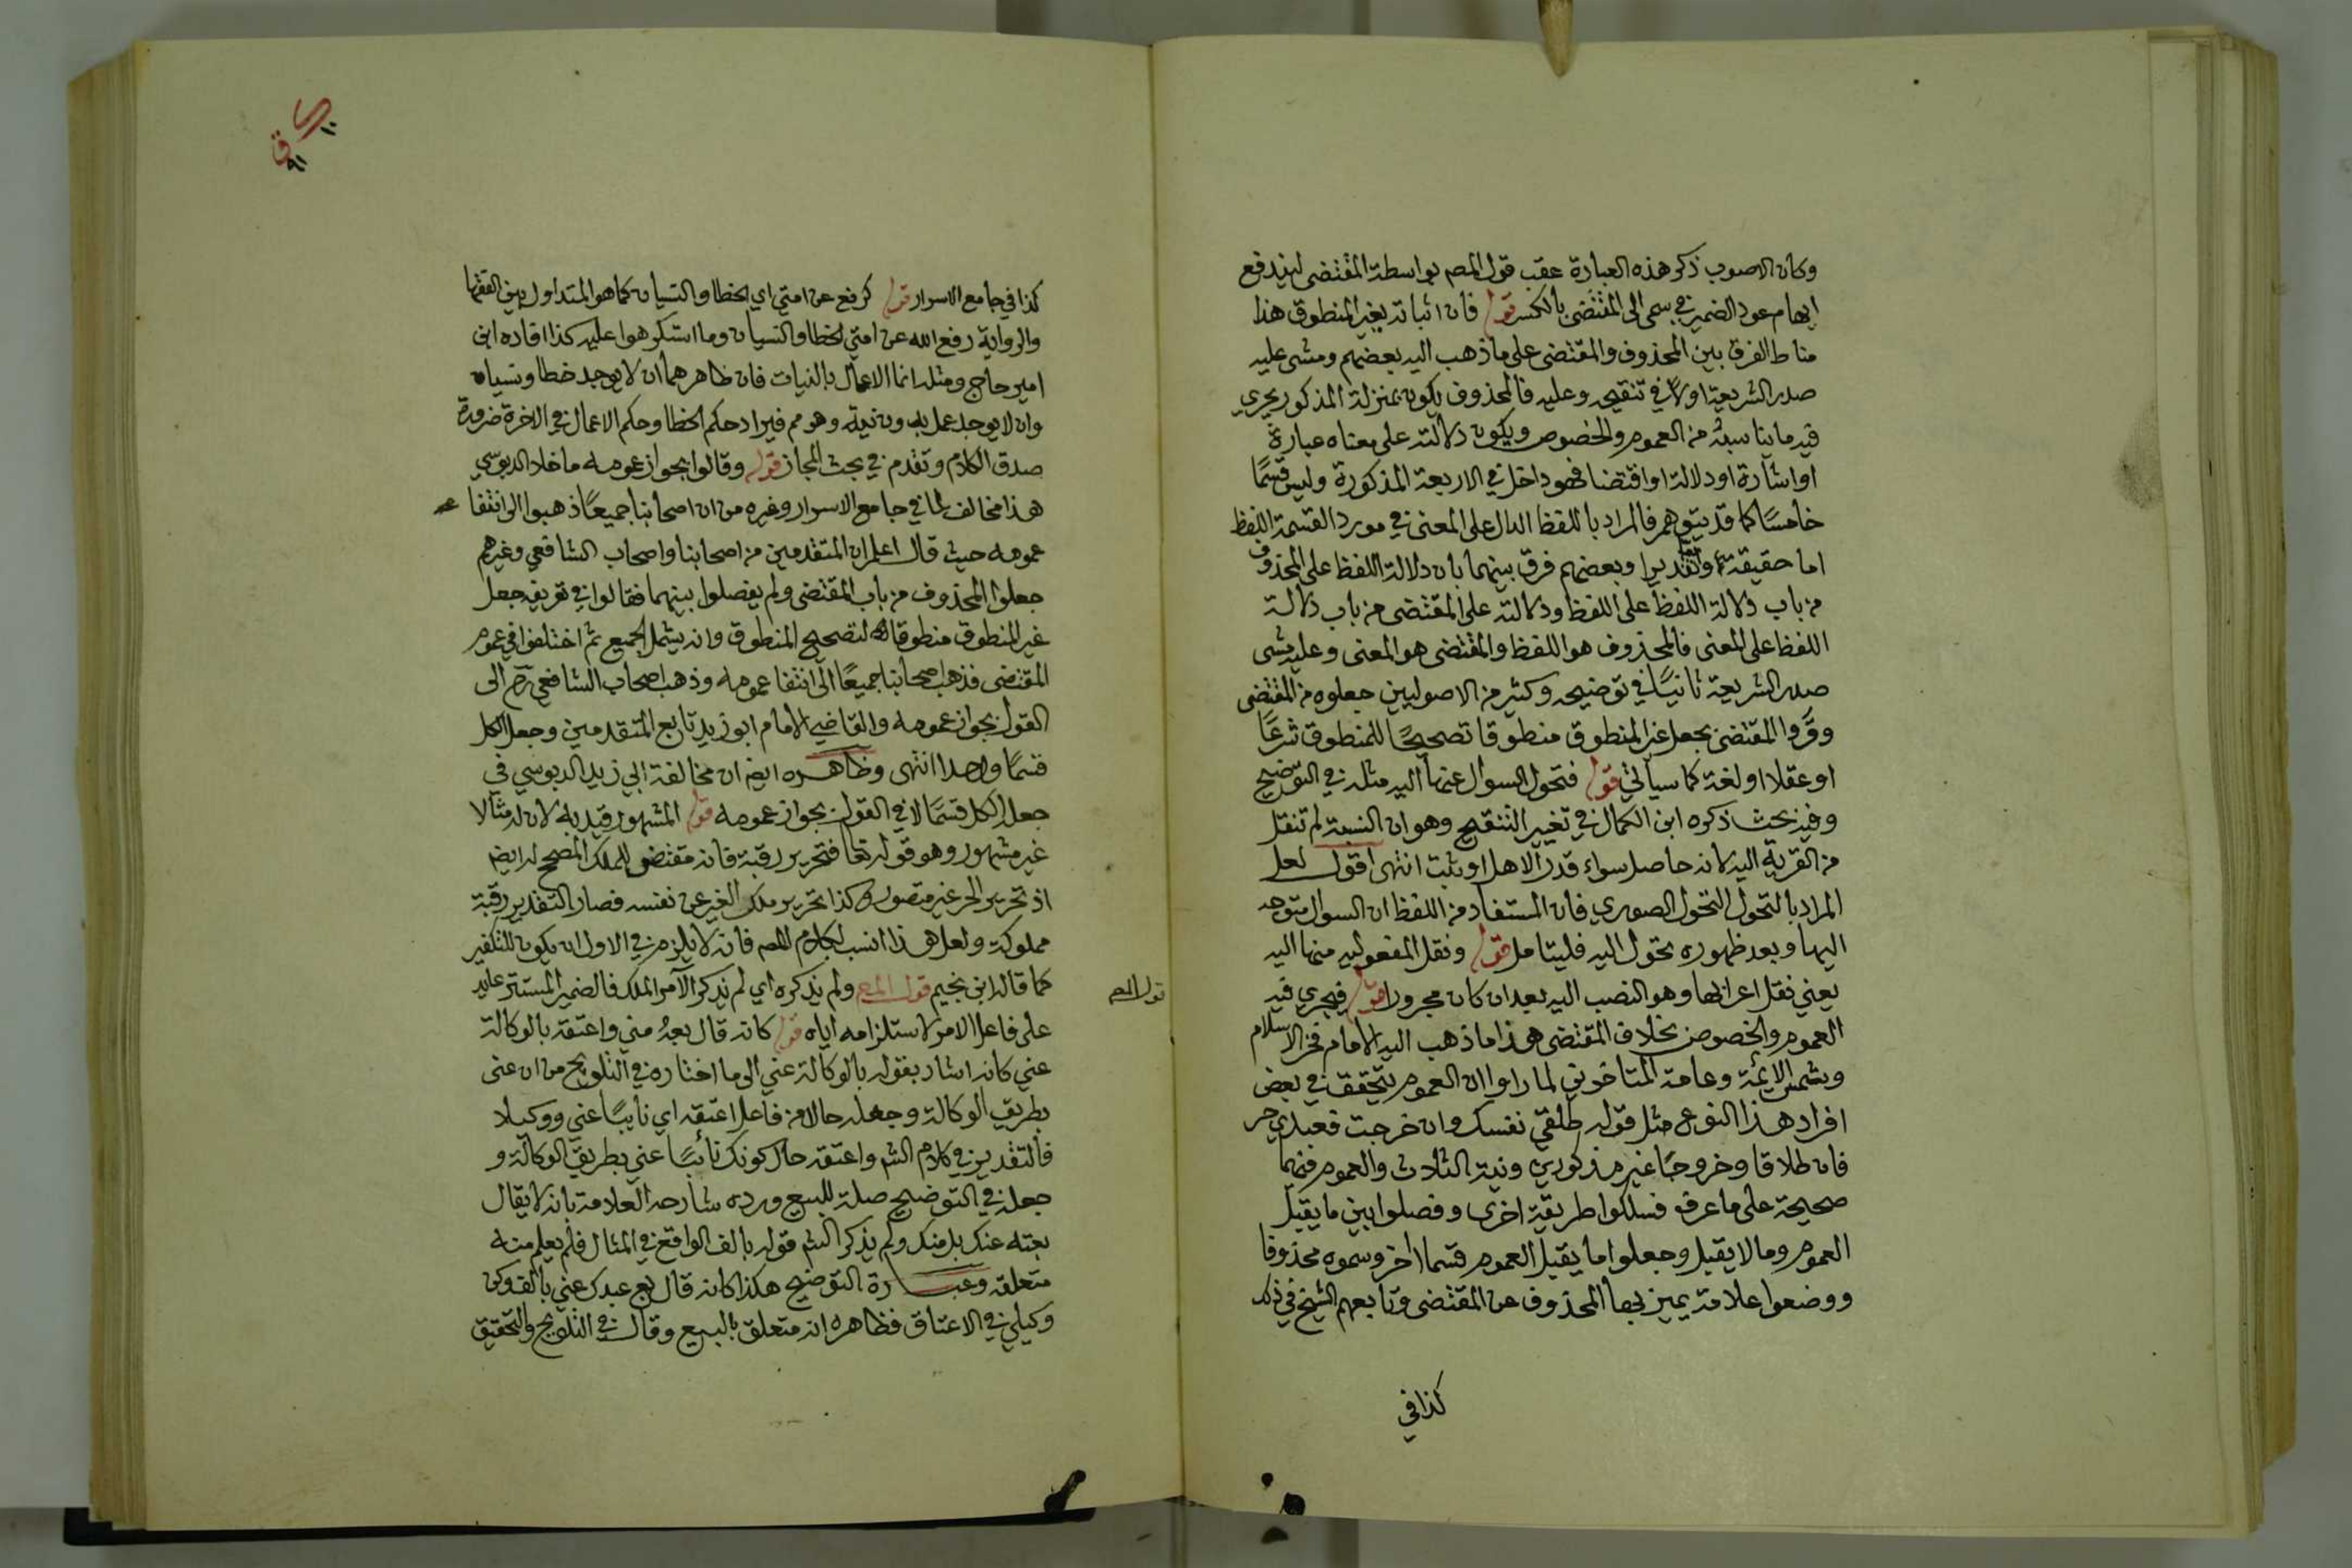 وكان الاصوب ذكر هذه العبارة عقب قول المصم بواسطة المقتضى ليندفع
ايهام عود الضمير في سمى الى المقتضى بالكسر قوله فان اثباته يغير المنطوق هذا
مناط الفرق بين المحذوف والمقتضى على ما ذهب اليه بعضهم ومشى عليه
صدر الشريعة اولا في تنقيحه وعليه فالمحذوف يكون بمنزلة المذكور يجري
فيه ما يناسبه من العموم والخصوص ويكون دلالته على معناه عبارة
او اشارة او دلالة او اقتضا فهو داخل في الاربعة المذكورة وليس قسمًا
خامسًا كما قد يتوهم فالمراد باللفظ الدال على المعنى في مورد القسمة اللفظ
اما حقيقة واما تقديرا وبعضهم فرق بينهما بان دلالة اللفظ على المحذوف
من باب دلالة اللفظ على اللفظ ودلالته على المقتضى من باب دلالة
اللفظ على المعنى فالمحذوف هو اللفظ والمقتضى هو المعنى وعليه مشى
صدر الشريعة ثانيًا في توضيحه وكثير من الاصوليين جعلوه من المقتضى
المقتضى بجعل غير المنطوق منطوقا تصحيحًا للمنطوق شرعًا
او عقلا او لغة كما سيأتي قوله فتحول السوال عنها اليه مثله في التوضيح
وفيه بحث ذكره ابن الكمال في تغيير التنقيح وهو ان النسبة لم تنقل
من القرية اليه لانه حاصل سواء قدر الاهل او يثبت انتهى اقول لعل
المراد بالتحول التحول الصوري فان المستفاد من اللفظ ان السوال متوجه
اليها وبعد ظهوره تحول اليه فليتامل قوله ونقل المفعولية منها اليه
يعني نقل اعرابها وهو النصب اليه بعد ان كان مجرورا قوله فيجري فيه
العموم والخصوص بخلاف المقتضى هذا ما ذهب اليه الامام فخر الاسلام
وشمس الايمة وعامة المتاخرين لما راوا ان العموم يتحقق في بعض
افراد هذا النوع مثل قوله طلقي نفسك وان خرجت فعبدي حر
فان طلاقا وخروجًا غير مذكورين ونية الثلاث والعموم فيهما
صحيحة على ما عرف فسلكوا طريقة اخرى وفصلوا بين ما يقبل
العموم وما لا يقبل وجعلوا ما يقبل العموم قسما اخر وسموه محذوفا
ووضعوا علامة يميز بها المحذوف عن المقتضى وتابعهم الشيخ في ذلك
كذا في
كذا في جامع الاسرار قوله كرفع عن امتي اي الخطا والنسيان كما هو المتداول بين الفقها
والرواية رفع الله عن امتي الخطا والنسيان وما استكرهوا عليه كذا افاده ابن
امير حاج ومثله انما الاعمال بالنيات فان ظاهرهما ان لا يوجد خطا ونسيان
وان لا يوجد عمل بدون نية وهو مم فيراد حكم الخطا وحكم الاعمال في الاخرة ضرورة
صدق الكلام وتقدم في بحث المجاز قوله وقالوا بجواز عومه ما خلا الدبوسي
هذا مخالف لما في جامع الاسرار وغيره من ان اصحابنا جميعًا ذهبوا الى انتفا
عمومه حيث قال اعلم ان المتقدمين من اصحابنا واصحاب الشافعي وغيرهم
جعلوا المحذوف من باب المقتضى ولم يفصلوا بينهما فقالوا في تعريفه جعل
غير المنطوق منطوقا لتصحيح المنطوق وانه يشمل الجميع ثم اختلفوا في عموم
المقتضى فذهب اصحابنا جميعًا الى انتفا عمومه وذهب اصحاب الشافعي رحم الى
القول بجواز عمومه والقاضي الامام ابو زيد تابع المتقدمين وجعل الكل
قسمًا واحدا انتهى وظاهره ايضا ان مخالفة ابي زيد الدبوسي في
جعل الكل قسمًا لا في القول بجواز عمومه قوله المشهور قيد به لان له مثالا
غير مشهور وهو قوله تعا فتحرير رقبة فانه مقتضي للملك المصحح له ايضا
اذ تحرير الحر غير متصور وكذا تحرير ملك الغير عن نفسه فصار التقدير رقبة
مملوكة ولعل هذا انسب لكلام المصم فانه لا يلزم في الاول ان يكون للتكفير
كما قاله ابن نجيم قول المصم ولم يذكره اي لم يذكر الآمر الملك فالضمير المستتر عايد
على فاعل الامر لاستلزامه اياه قوله كانه قال بعهُ مني واعتقه بالوكالة
عني كانه اشار بقوله بالوكالة عني الى ما اختاره في التلويح من ان عنى
بطريق الوكالة وجعله حالا من فاعل اعتقه اي نايبًا عني ووكيلا
فالتقدير في كلام الشم واعتقه حال كونك نائبًا عني بطريق الوكالة و
جعله في التوضيح صلة للبيع ورده شارحه العلامة بانه لا يقال
بعته عنك بل منك ولم يذكر الشم قوله بالف الواقع في المثال فلم يعلم منه
متعلقه وعبارة التوضيح هكذا كانه قال بع عبدك عني بالف وكن
وكيلي في الاعتاق فظاهره انه متعلق بالبيع وقال في التلويح والتحقيق
قول المصم